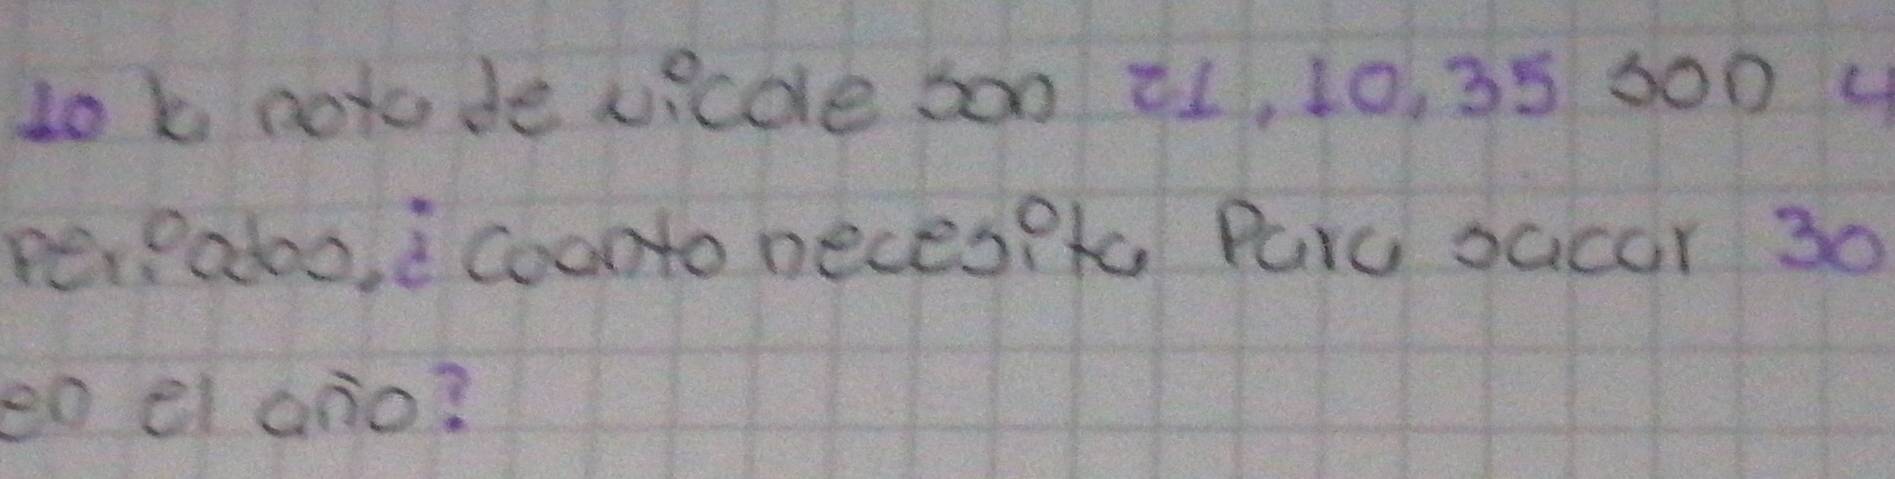 10 la nota de Nicole son 21, 10, 35 son 4
periodos, ¿ Cuanto necesita Para sacar 30
en el año?